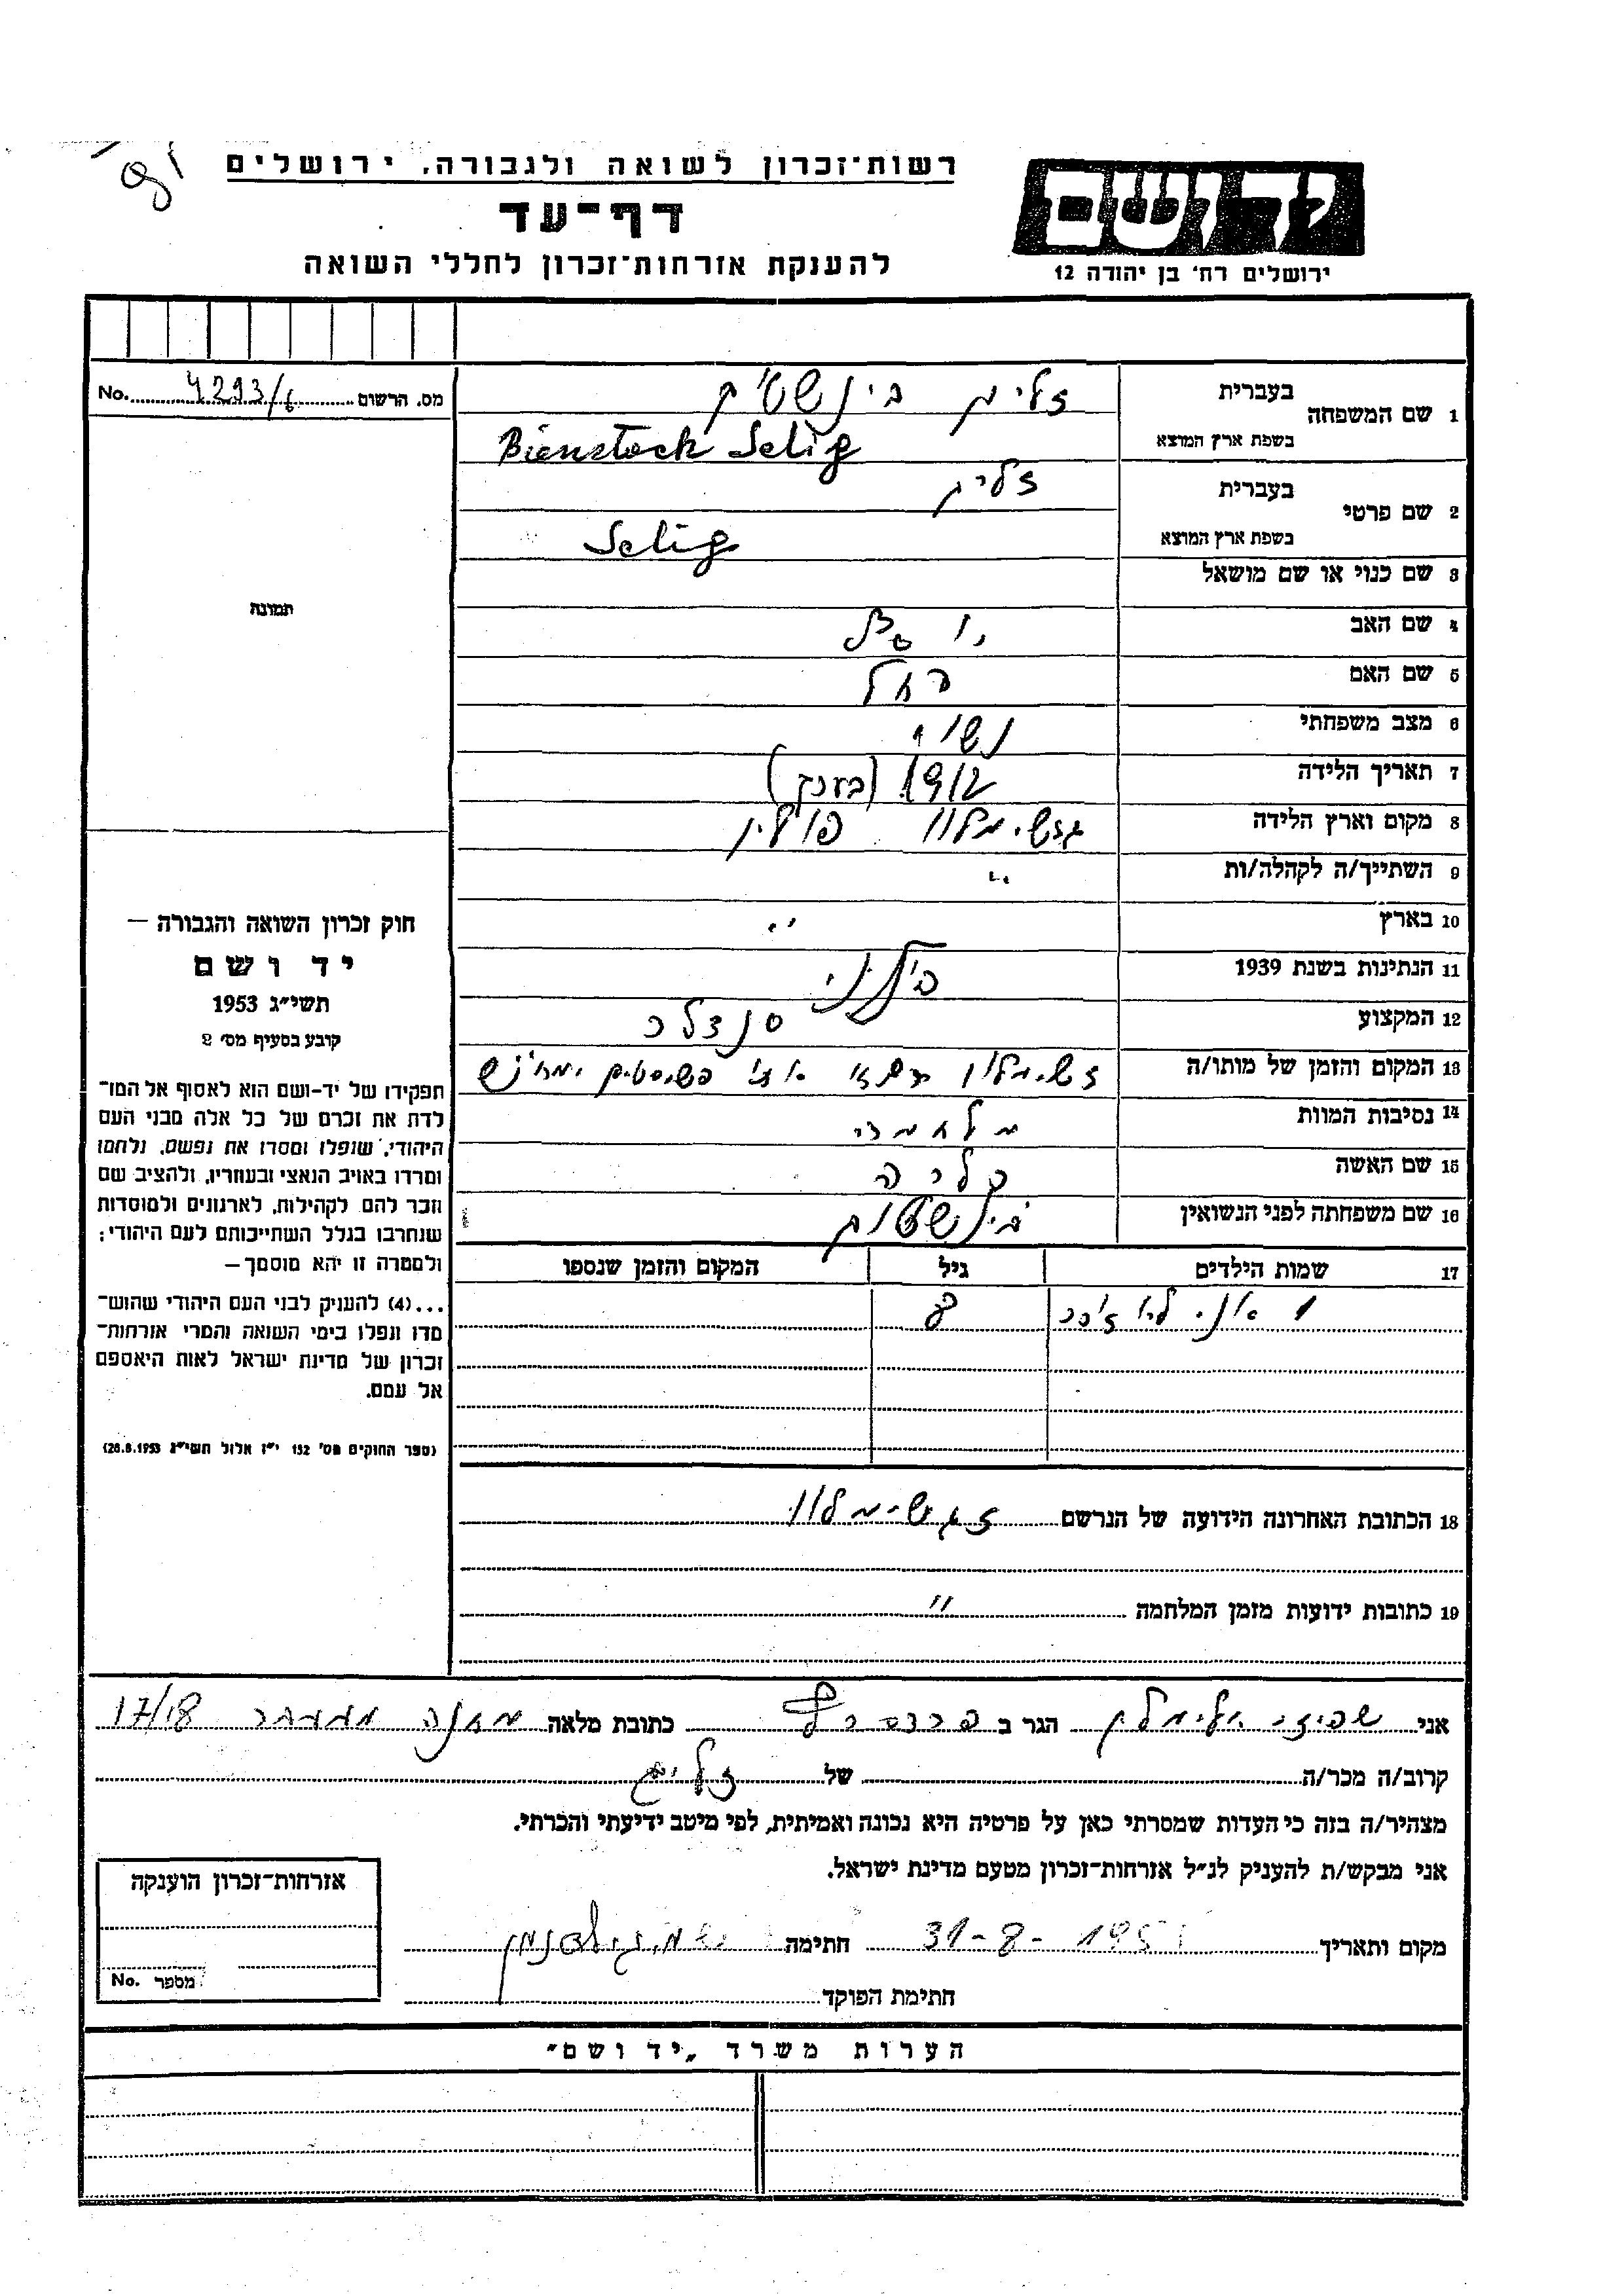 רשות־זכרון לשואה ולגבורה, ירושלים
דף־עד
להענקת אזרחות־זכרון לחללי השואה
יד ושם
ירושלים רח׳ בן יהודה 12
מס. הרשום 4293/6 No.
1 שם המשפחה
בעברית זליג בינשטוק
בשפת ארץ המוצא Bienstock Selig
2 שם פרטי
בעברית זליג
בשפת ארץ המוצא Selig
3 שם כנוי או שם מושאל
4 שם האב
5 שם האם רחל
6 מצב משפחתי נשוי
7 תאריך הלידה 1912 (בערך)
8 מקום וארץ הלידה פולין
9 השתייך/ה לקהלה/ות "
10 בארץ "
11 הנתינות בשנת 1939 פולני
12 המקצוע סנדלר
13 המקום והזמן של מותו/ה
14 נסיבות המוות
15 שם האשה
16 שם משפחתה לפני הנשואין בינשטוק
17 שמות הילדים גיל המקום והזמן שנספו
1 אני לא זוכר 8
18 הכתובת האחרונה הידועה של הנרשם
19 כתובות ידועות מזמן המלחמה "
תמונה
חוק זכרון השואה והגבורה —
יד ושם
תשי״ג 1953
קובע בסעיף מס׳ 2
תפקידו של יד-ושם הוא לאסוף אל המו־
לדת את זכרם של כל אלה מבני העם
היהודי, שנפלו ומסרו את נפשם, נלחמו
ומרדו באויב הנאצי ובעוזריו, ולהציב שם
וזכר להם לקהילות, לארגונים ולמוסדות
שנחרבו בגלל השתייכותם לעם היהודי;
ולמטרה זו יהא מוסמך —
...(4) להעניק לבני העם היהודי שהוש־
מדו ונפלו בימי השואה והמרי אזרחות־
זכרון של מדינת ישראל לאות היאספם
אל עמם.
(ספר החוקים מס׳ 132 י״ז אלול תשי״ג 28.8.1953)
אני הגר ב כתובת מלאה 17/18
קרוב/ה מכר/ה של זליג
מצהיר/ה בזה כי העדות שמסרתי כאן על פרטיה היא נכונה ואמיתית, לפי מיטב ידיעתי והכרתי.
אני מבקש/ת להעניק לנ״ל אזרחות־זכרון מטעם מדינת ישראל.
מקום ותאריך 31-8- חתימה
חתימת הפוקד
אזרחות־זכרון הוענקה
מספר No.
הערות משרד „יד ושם״